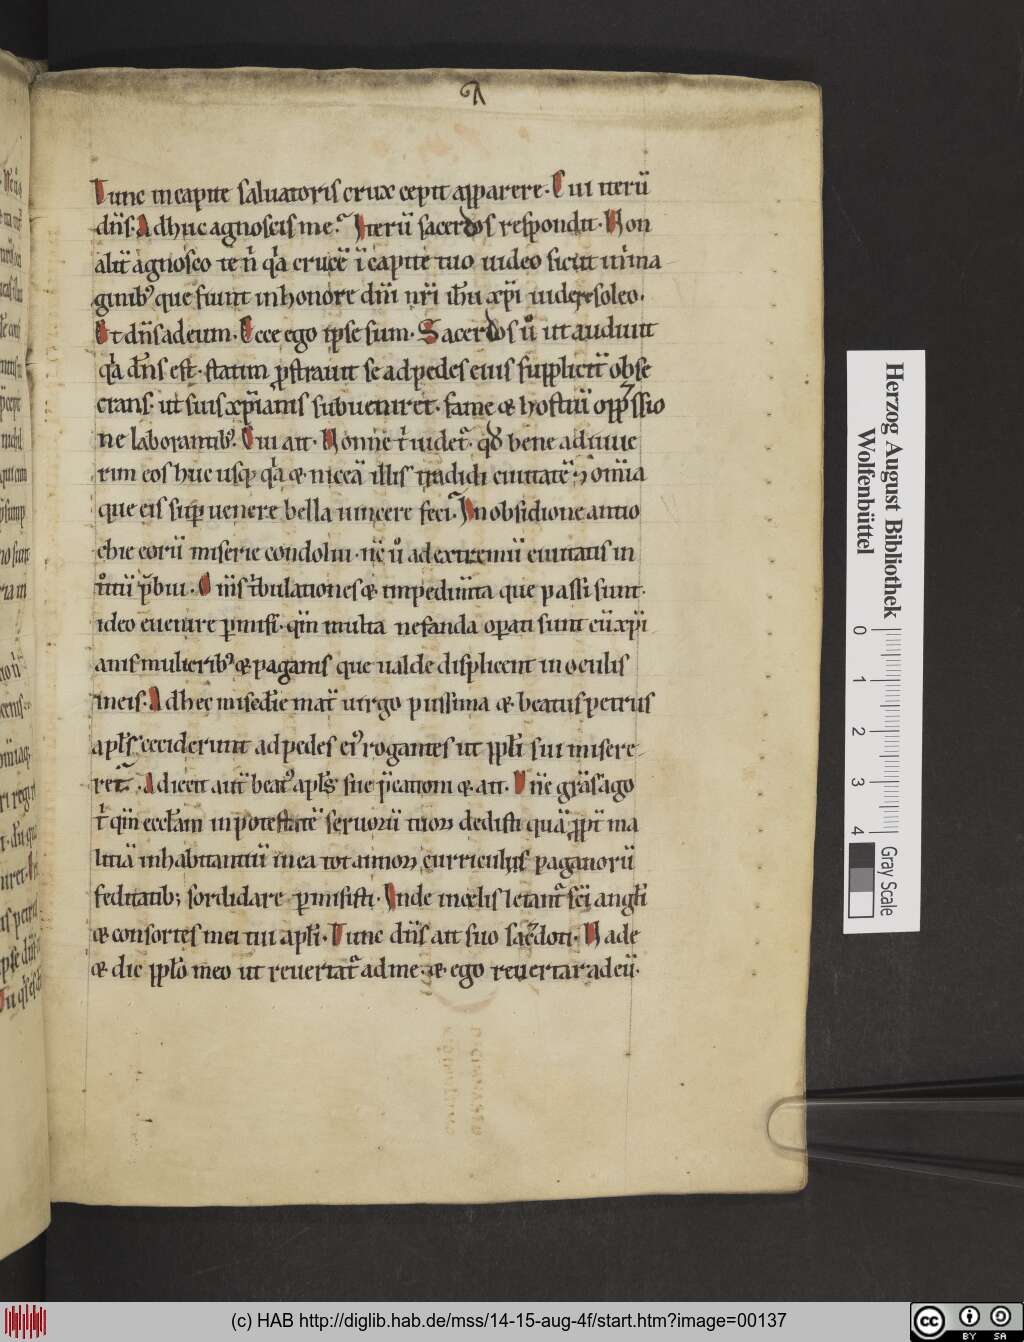 Tunc in capite saluatoris crux cepit apparere. Cui iterū
dn̄s. Adhuc agnoscis me? Iterū sacerdos respondit. Non
alit̄ agnosco te n̄ qͥa crucē ī capite tuo uideo sicut in īma
ginibꝰ que fiunt in honore dn̄i nr̄i ih̄u xp̄i uidere soleo.
Et dn̄s ad eum. Ecce ego ipse sum. Sacerdos ů ut audiuit
qͥa dn̄s est. statim ꝓstrauit se ad pedes eius supplicit̄ obse
crans. ut suis xp̄ianis subueniret. fame & hostiū opp̄ssio
ne laborantibꝰ. Cui ait. Nonne t̄ uidet̄. qđ bene adiuue
rim eos huc usqꝫ qͥa & niceā illis tradidi ciuitatē ⁊ om̄ia
que eis suꝑuenere bella uincere feci. In obsidione antio
chie eorū miserie condolui. nc̄ ů ad extremū ciuitatis in
troitū p̄bui. Om̄s tͥbulationes & impedim̄ta que passi sunt.
ideo euenire ꝑmisi. qm̄ multa nefanda oꝑati sunt cū xp̄i
anis mulieribꝰ & paganis que ualde displicent in oculis
meis. Ad hec mise͞die mat̄ uirgo piissima & beatus petrus
apl̄s ceciderunt ad pedes eiꝰ rogantes ut ppl̄i sui misere
ret̄. Adiecit aut̄ beatꝰ apl̄s sue p̄cationi & ait. Dn̄e grā͞s ago
t̄ qm̄ eccl̄am in potestatē seruorū tuoꝝ dedisti quā ꝓpt̄ ma
litiā inhabitantiū in ea tot annoꝝ curriculis paganorū
feditatibꝫ sordidare ꝑmisisti. Inde in celis letant̄ sc̄i angl̄i
& consortes mei tui apl̄i. Tunc dn̄s ait suo sac̄doti. Vade
& dic ppl̄o meo ut reuertat̄ ad me. & ego reuertar ad eū.
Herzog August Bibliothek
Wolfenbüttel
0 1 2 3 4
Gray Scale
(c) HAB http://diglib.hab.de/mss/14-15-aug-4f/start.htm?image=00137
cc BY SA